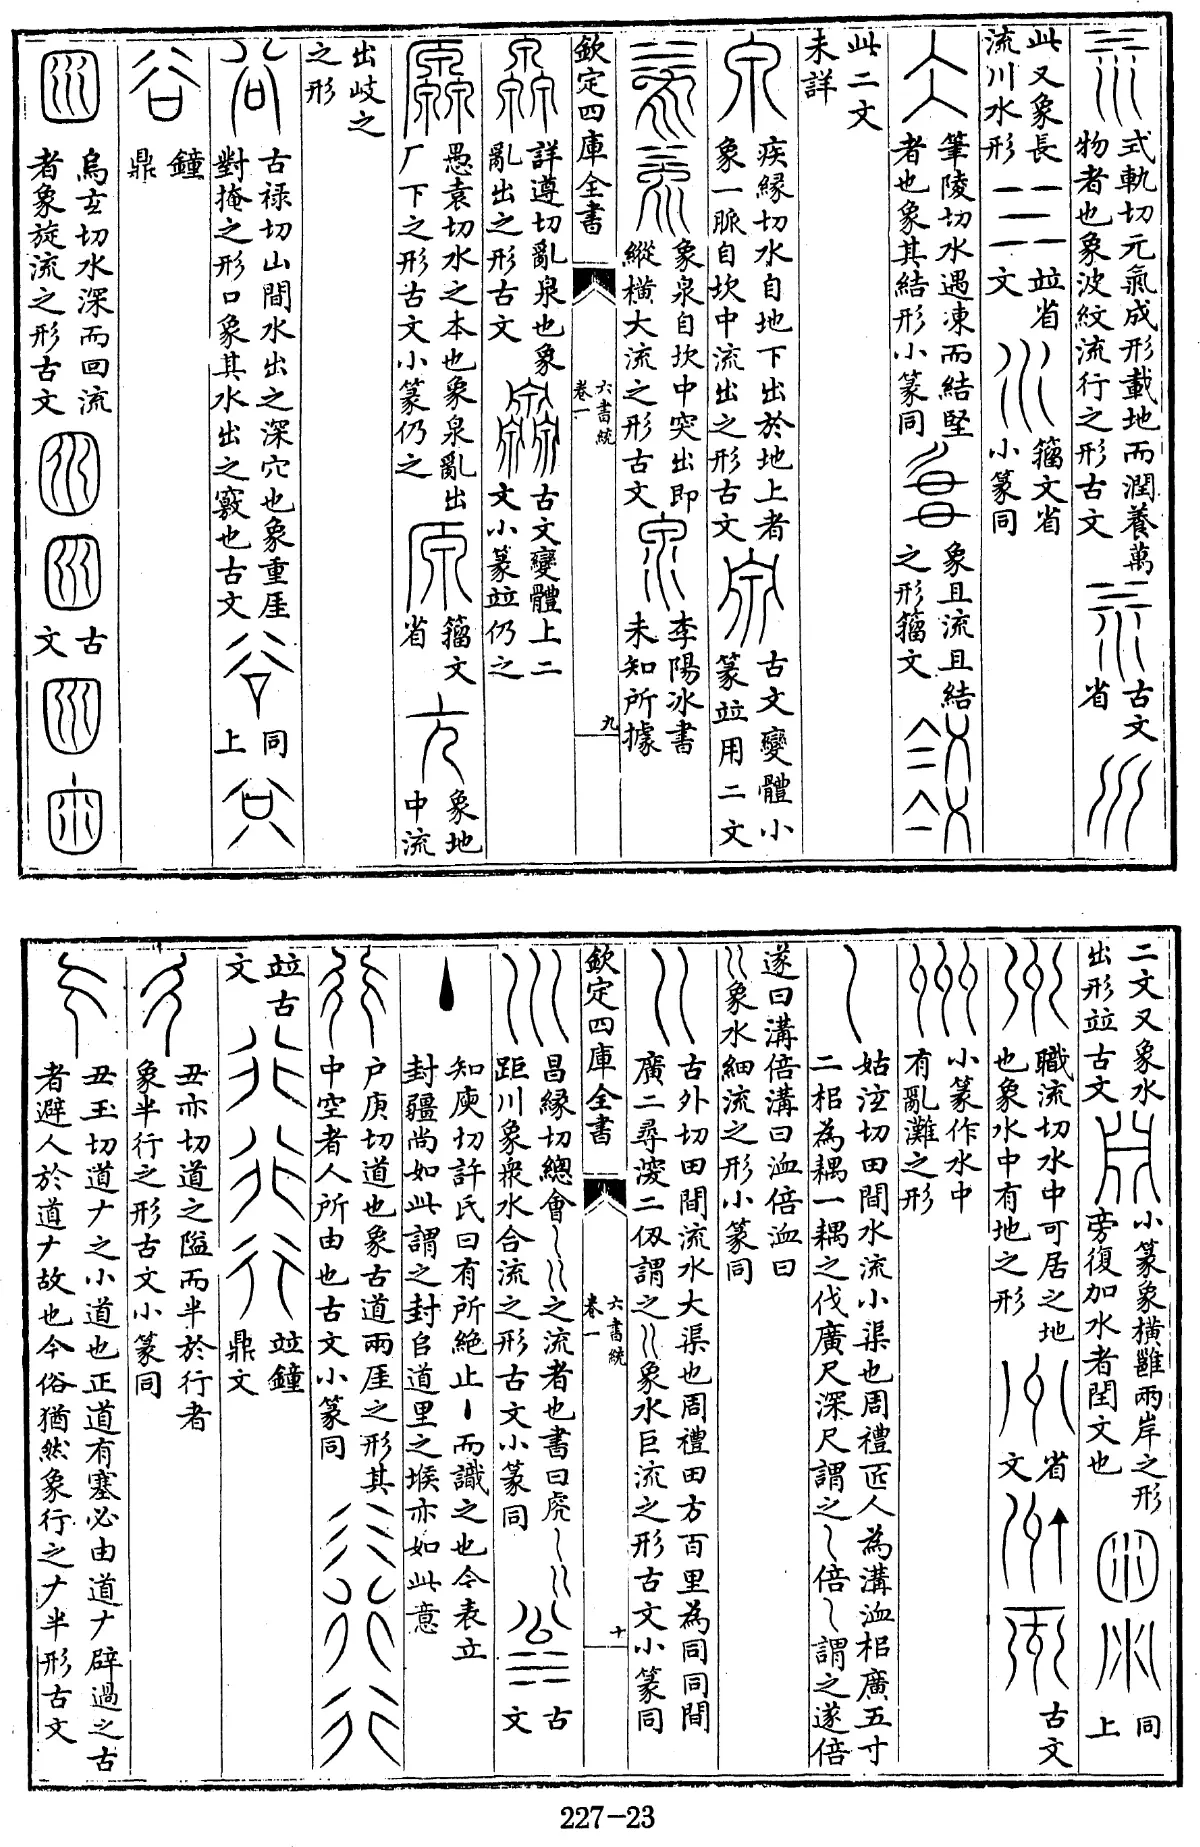 式軌切元氣成形載地而潤養萬
物者也象波紋流行之形古文
古文
省
此又象長
流川水形
竝省
文
籀文省
小篆同
筆陵切水遇凍而結堅
者也象其結形小篆同
象且流且結
之形籀文
此二文
未詳
疾緣切水自地下出於地上者
象一脈自坎中流出之形古文
古文變體小
篆竝用二文
象泉自坎中突出即
縱橫大流之形古文
李陽冰書
未知所據
欽定四庫全書
六書統
卷一
九
詳遵切亂泉也象
亂出之形古文
古文變體上二
文小篆竝仍之
愚袁切水之本也象泉亂出
厂下之形古文小篆仍之
籀文
省
象地
中流
出岐之
之形
古祿切山間水出之深穴也象重厓
對掩之形口象其水出之竅也古文
同
上
鐘
鼎
烏玄切水深而回流
者象旋流之形古文
古
文
二文又象水
出形竝古文
小篆象橫雝兩岸之形
旁復加水者閏文也
同
上
職流切水中可居之地
也象水中有地之形
省
文
古文
小篆作水中
有亂灘之形
姑泫切田間水流小渠也周禮匠人為溝洫耜廣五寸
二耜為耦一耦之伐廣尺深尺謂之〵倍〵謂之遂倍
遂曰溝倍溝曰洫倍洫曰
〵〵象水細流之形小篆同
古外切田間流水大渠也周禮田方百里為同同間
廣二尋深二仞謂之〵〵象水巨流之形古文小篆同
欽定四庫全書
六書統
卷一
十
昌緣切總會〵〵〵之流者也書曰虎〵〵〵
距川象衆水合流之形古文小篆同
古
文
知庾切許氏曰有所絶止丶而識之也今表立
封疆尚如此謂之封⾃道里之堠亦如此意
户庚切道也象古道兩厓之形其
中空者人所由也古文小篆同
竝古
文
竝鐘
鼎文
丑亦切道之隘而半於行者
象半行之形古文小篆同
丑玉切道𠂇之小道也正道有塞必由道𠂇辟過之古
者避人於道𠂇故也今俗猶然象行之𠂇半形古文
227-23